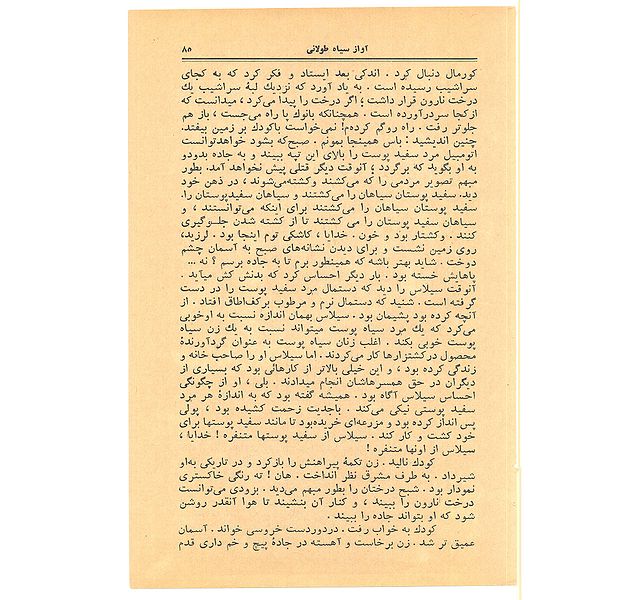 آواز سیاه طولانی ۸۵
کورمال دنبال کرد . اندکی بعد ایستاد و فکر کرد که به کجای
سراشیب رسیده است . به یاد آورد که نزدیك لبهٔ سراشیب یك
درخت نارون قرار داشت ؛ اگر درخت را پیدا می‌کرد ، میدانست که
ازکجا سردرآورده است . همچنانکه بانوك پا راه می‌جست ، باز هم
جلوتر رفت . راه روگم کرده‌م! نمی‌خواست باکودك بر زمین بیفتد.
چنین اندیشید : باس همینجا بمونم . صبح‌که بشود خواهدتوانست
اتومبیل مرد سفید پوست را بالای این تپه ببیند و به جاده بدودو
به او بگوید که برگردد ؛ آنوقت دیگر قتلی پیش نخواهد آمد. بطور
مبهم تصویر مردمی را که می‌کشند وکشته‌می‌شوند ، در ذهن خود
دید. سفید پوستان سیاهان را می‌کشتند و سیاهان سفیدپوستان را.
سفید پوستان سیاهان را می‌کشتند برای اینکه می‌توانستند ، و
سیاهان سفید پوستان را می کشتند تا از کشته شدن جلوگیری
کنند . وکشتار بود و خون . خدایا ، کاشکی توم اینجا بود . لرزید،
روی زمین نشست و برای دیدن نشانه‌های صبح به آسمان چشم
دوخت . شاید بهتر باشه که همینطور برم تا به جاده برسم ؟ نه ...
پاهایش خسته بود . بار دیگر احساس کرد که بدنش کش میآید .
آنوقت سیلاس را دید که دستمال مرد سفید پوست را در دست
گرفته است . شنید که دستمال نرم و مرطوب برکف‌اطاق افتاد . از
آنچه کرده بود پشیمان بود . سیلاس بهمان اندازه نسبت به اوخوبی
می‌کرد که یك مرد سیاه پوست میتواند نسبت به یك زن سیاه
پوست خوبی بکند . اغلب زنان سیاه پوست به عنوان گردآورندهٔ
محصول درکشتزارها کار می‌کردند. اما سیلاس او را صاحب خانه و
زندگی کرده بود ، و این خیلی بالاتر از کارهائی بود که بسیاری از
دیگران در حق همسرهاشان انجام میدادند . بلی ، او از چگونگی
احساس سیلاس آگاه بود . همیشه گفته بود که به اندازهٔ هر مرد
سفید پوستی نیکی می‌کند . باجدیت زحمت کشیده بود ، پولی
پس انداز کرده بود و مزرعه‌ای خریده‌بود تا مانند سفید پوستها برای
خود کشت و کار کند . سیلاس از سفید پوستها متنفره ! خدایا ،
سیلاس از اونها متنفره !
کودك نالید . زن تکمهٔ پیراهنش را بازکرد و در تاریکی به‌او
شیرداد . به طرف مشرق نظر انداخت . هان ! ته رنگی خاکستری
نمودار بود . شبح درختان را بطور مبهم می‌دید . بزودی می‌توانست
درخت نارون را ببیند ، و کنار آن بنشیند تا هوا آنقدر روشن
شود که او بتواند جاده را ببیند .
کودك به خواب رفت . دردوردست خروسی خواند . آسمان
عمیق تر شد . زن برخاست و آهسته در جادهٔ پیچ و خم داری قدم